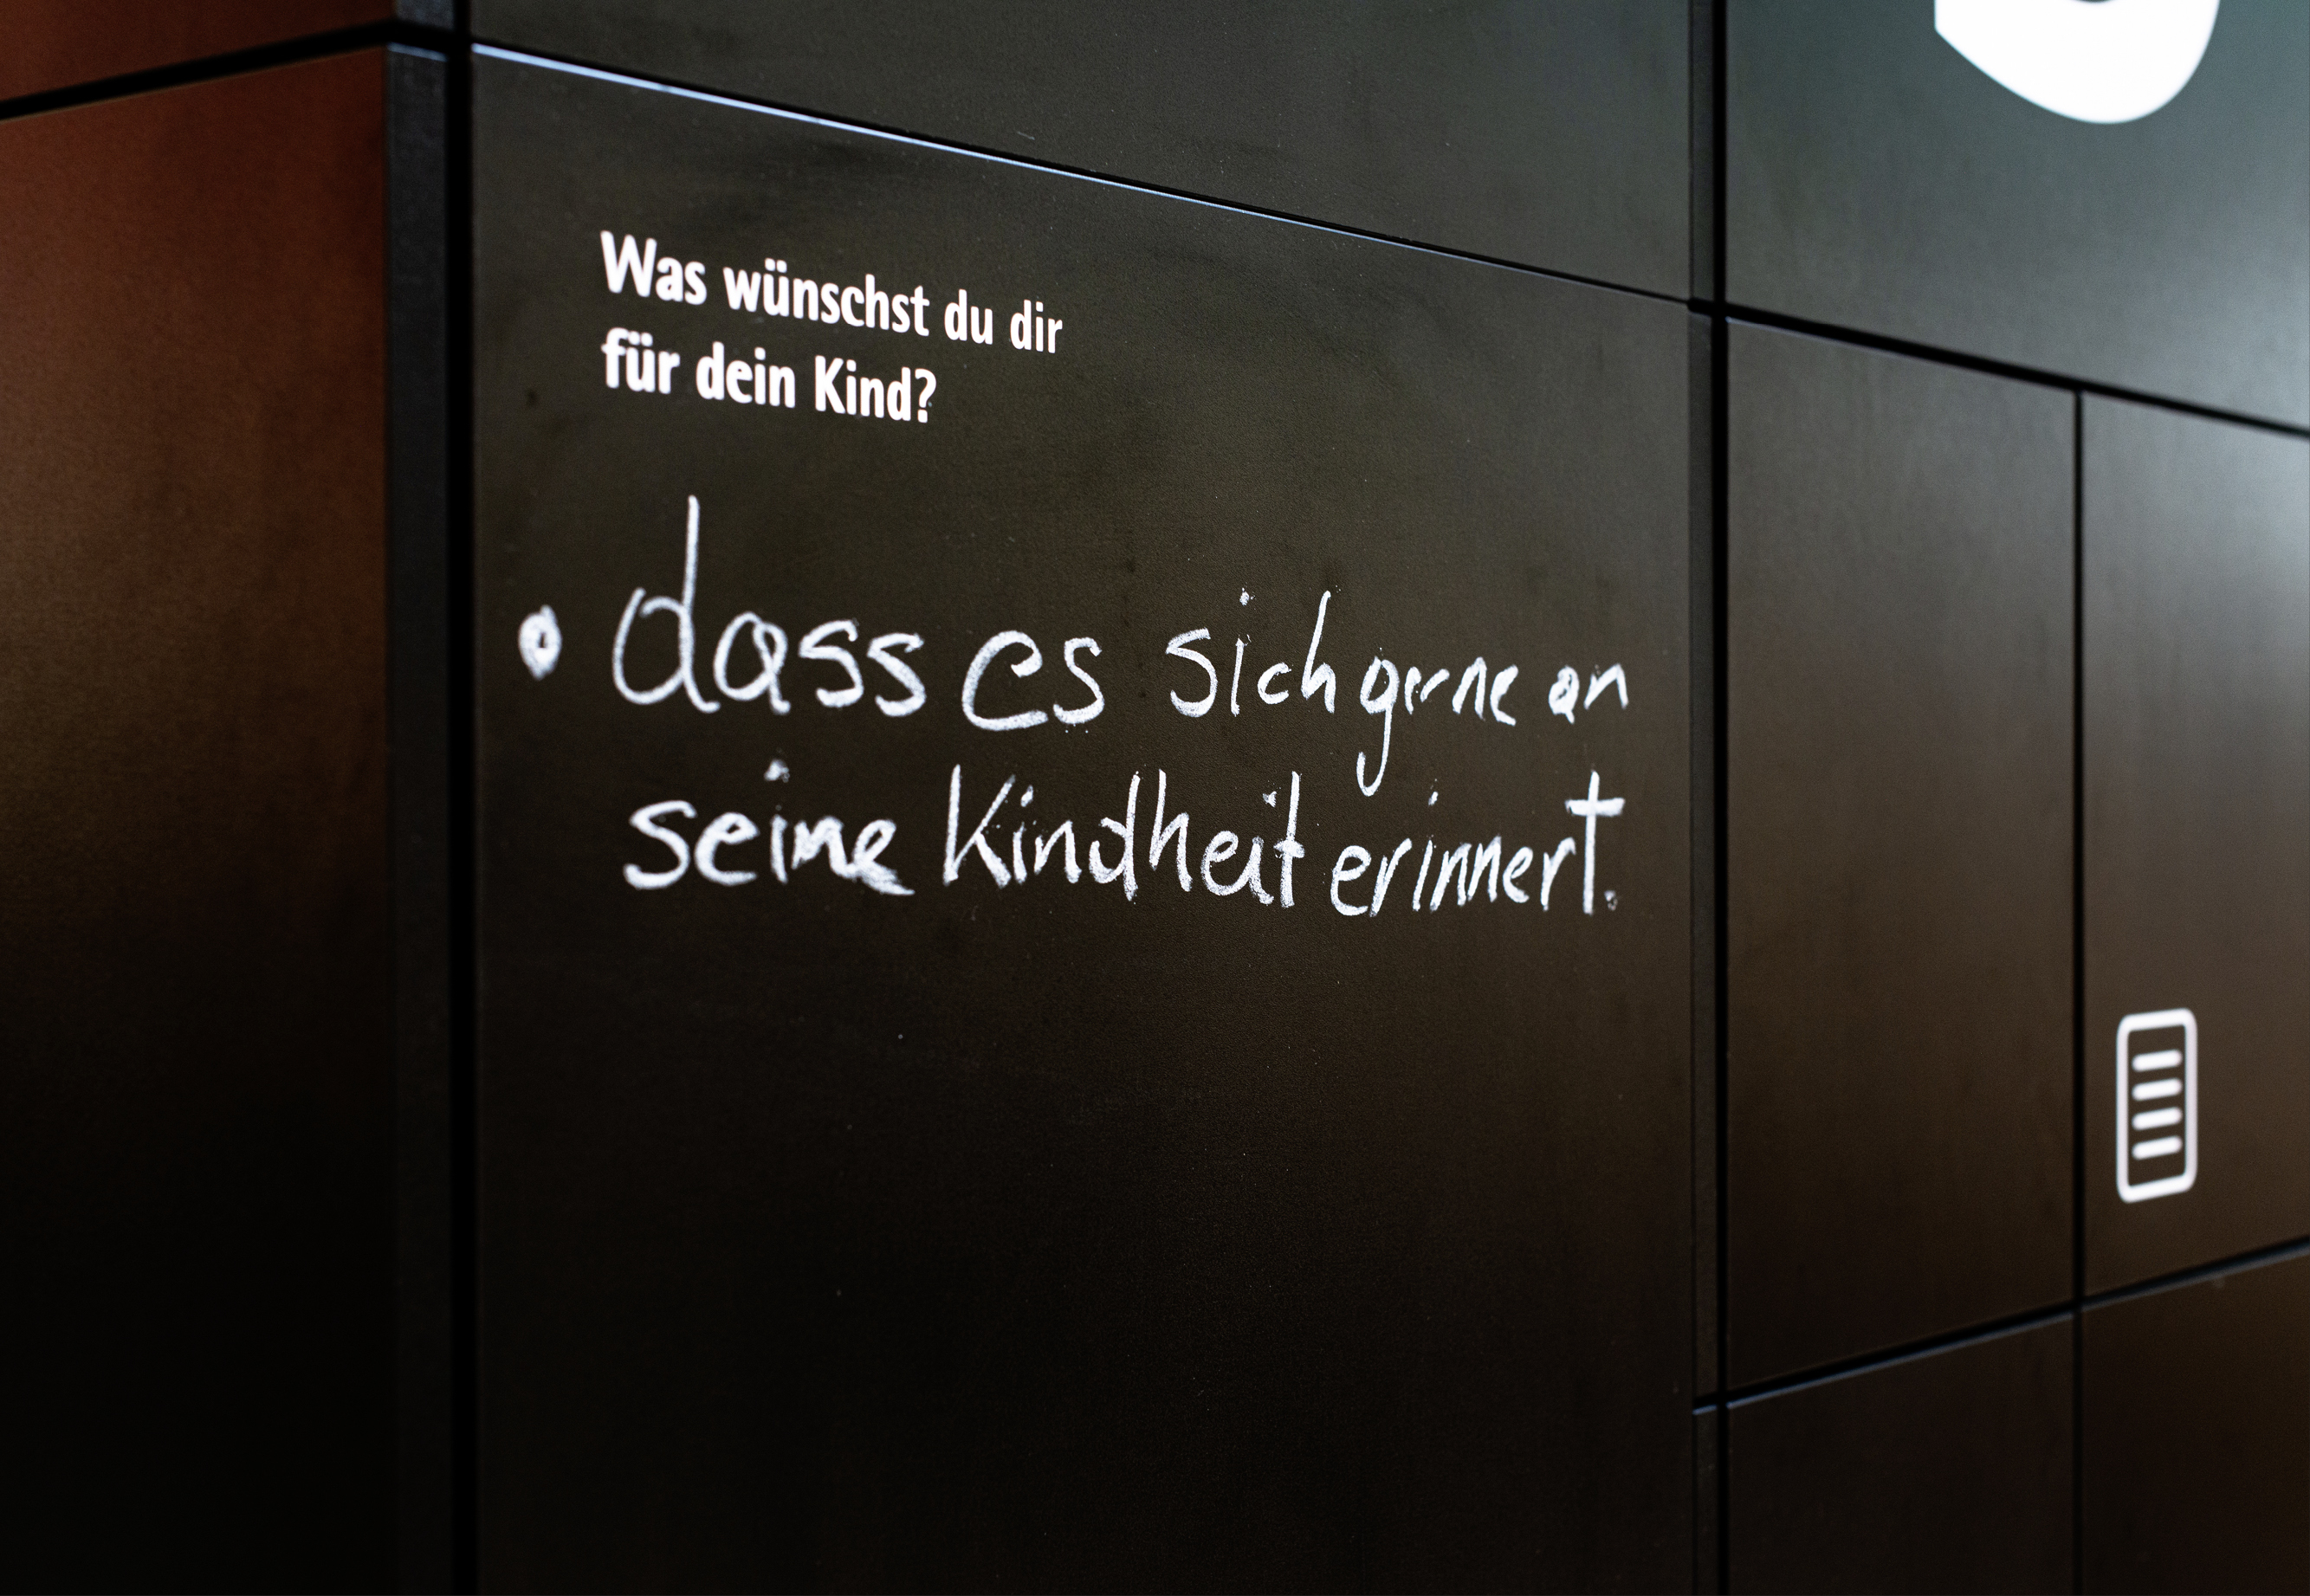 Was wünschst du dir
für dein Kind?
• dass es sich gerne an
seine Kindheit erinnert.